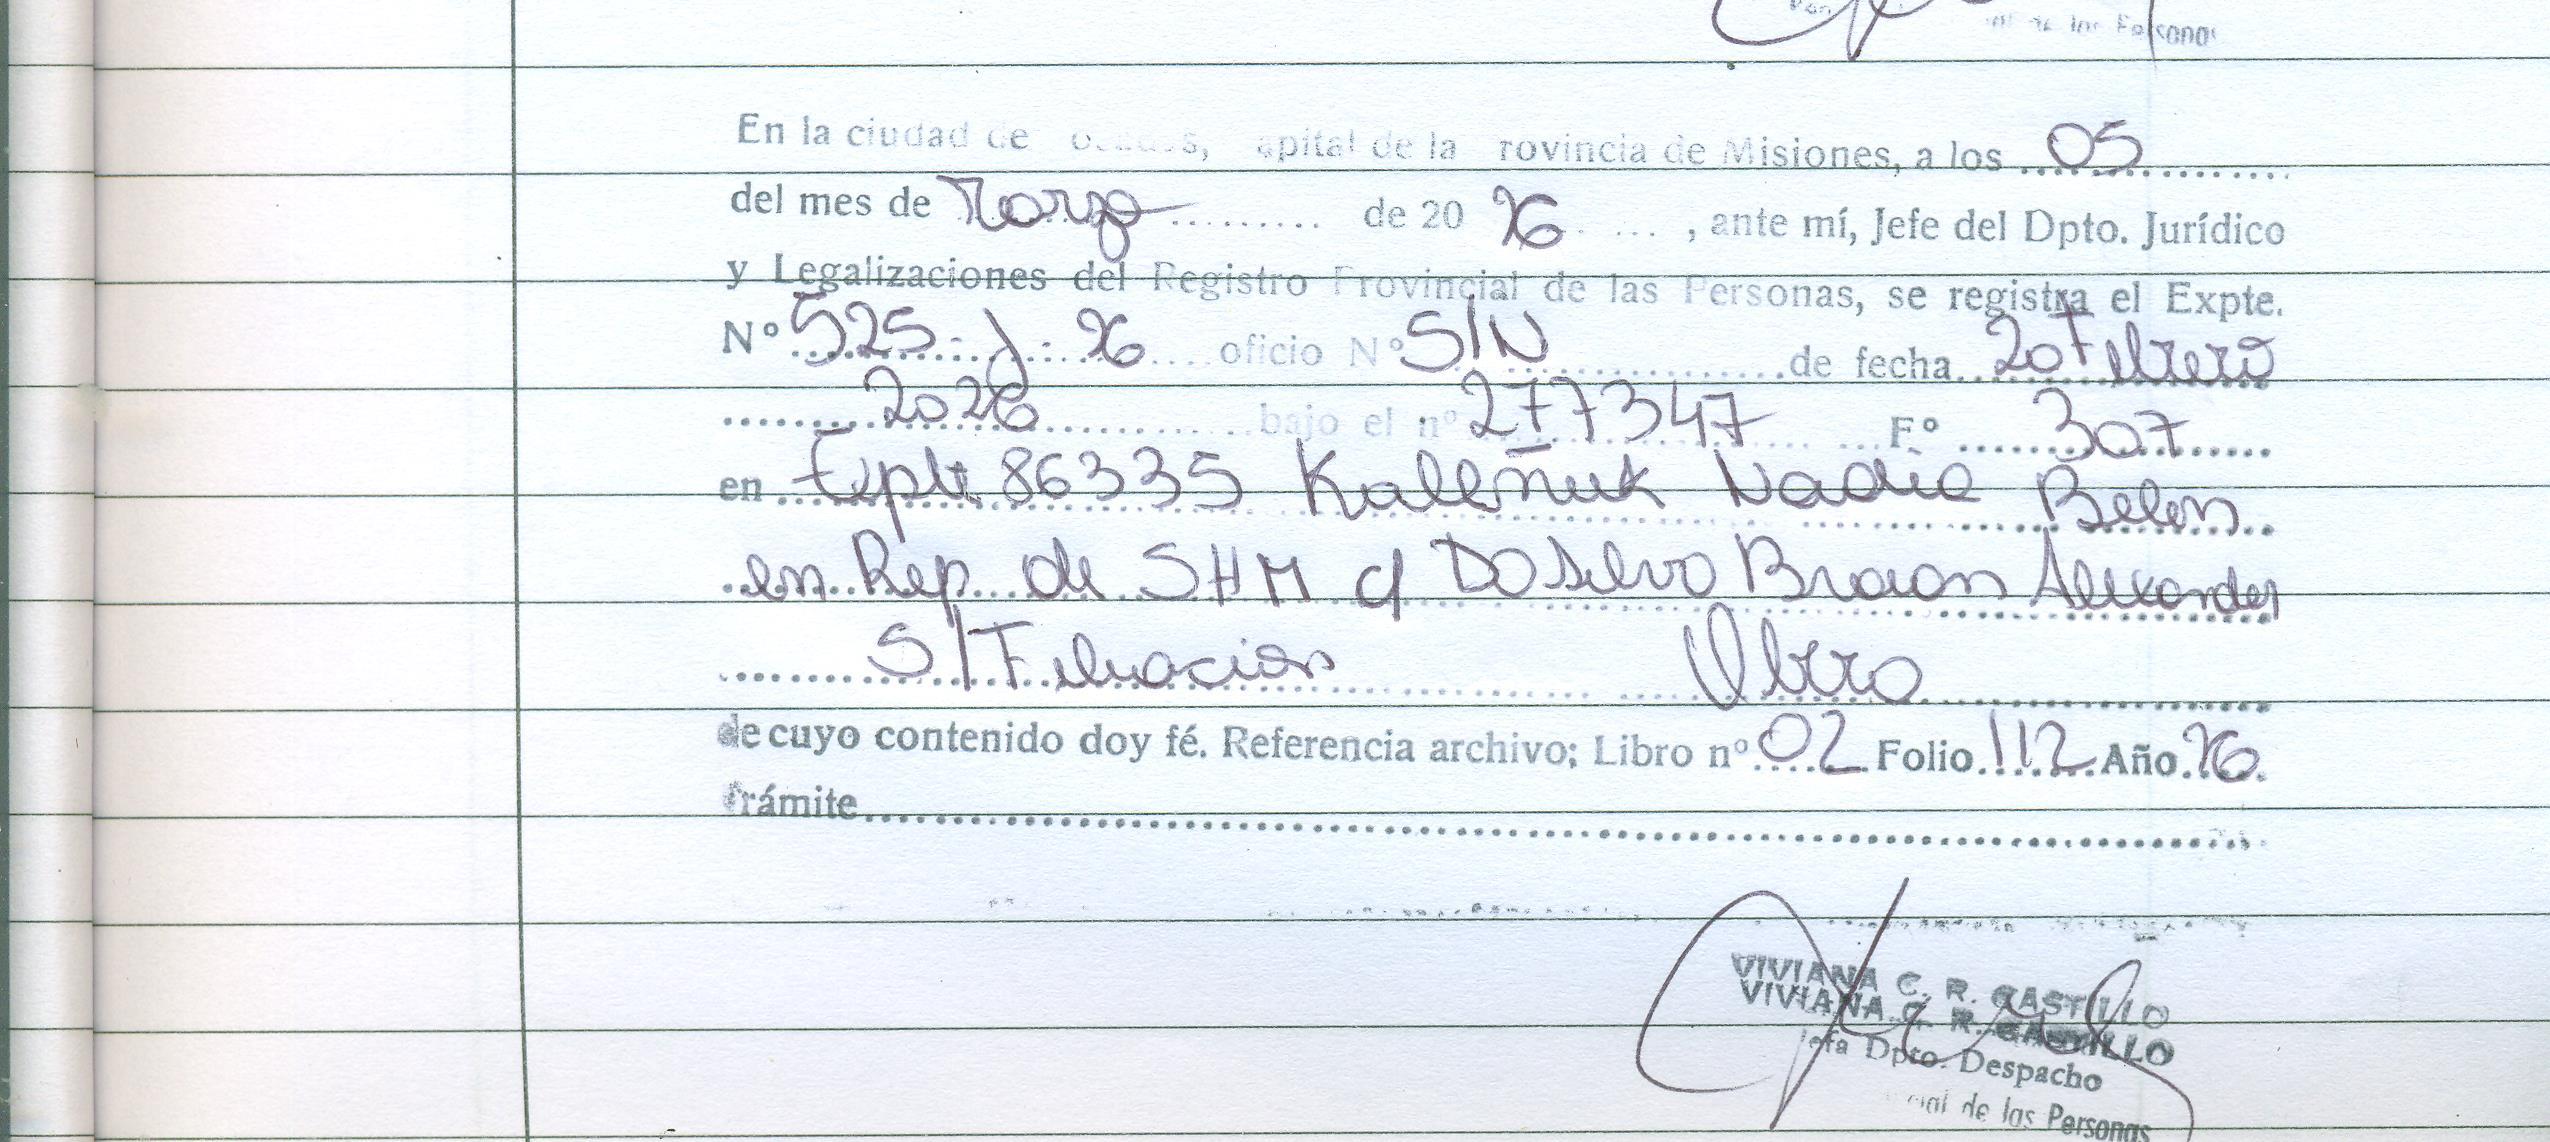 las Personas
En la ciudad de Posadas, Capital de la Provincia de Misiones, a los 05
del mes de Marzo de 20 26, ante mí, Jefe del Dpto. Jurídico
y Legalizaciones del Registro Provincial de las Personas, se registra el Expte.
Nº 525-J-26 oficio Nº S/N de fecha 20 Febrero
2026 bajo el nº 277347 Fº 307
en Expte. 86335 Kaleñuk Nadia Belen
en Rep. de SHM c/ Da Silva Braian Alexander
S/Filiacion Obera
de cuyo contenido doy fé. Referencia archivo; Libro nº 02 Folio 112 Año 26
Trámite
VIVIANA C. R. CASTILLO
VIVIANA C. R. CASTILLO
Jefa Dpto. Despacho
de las Personas